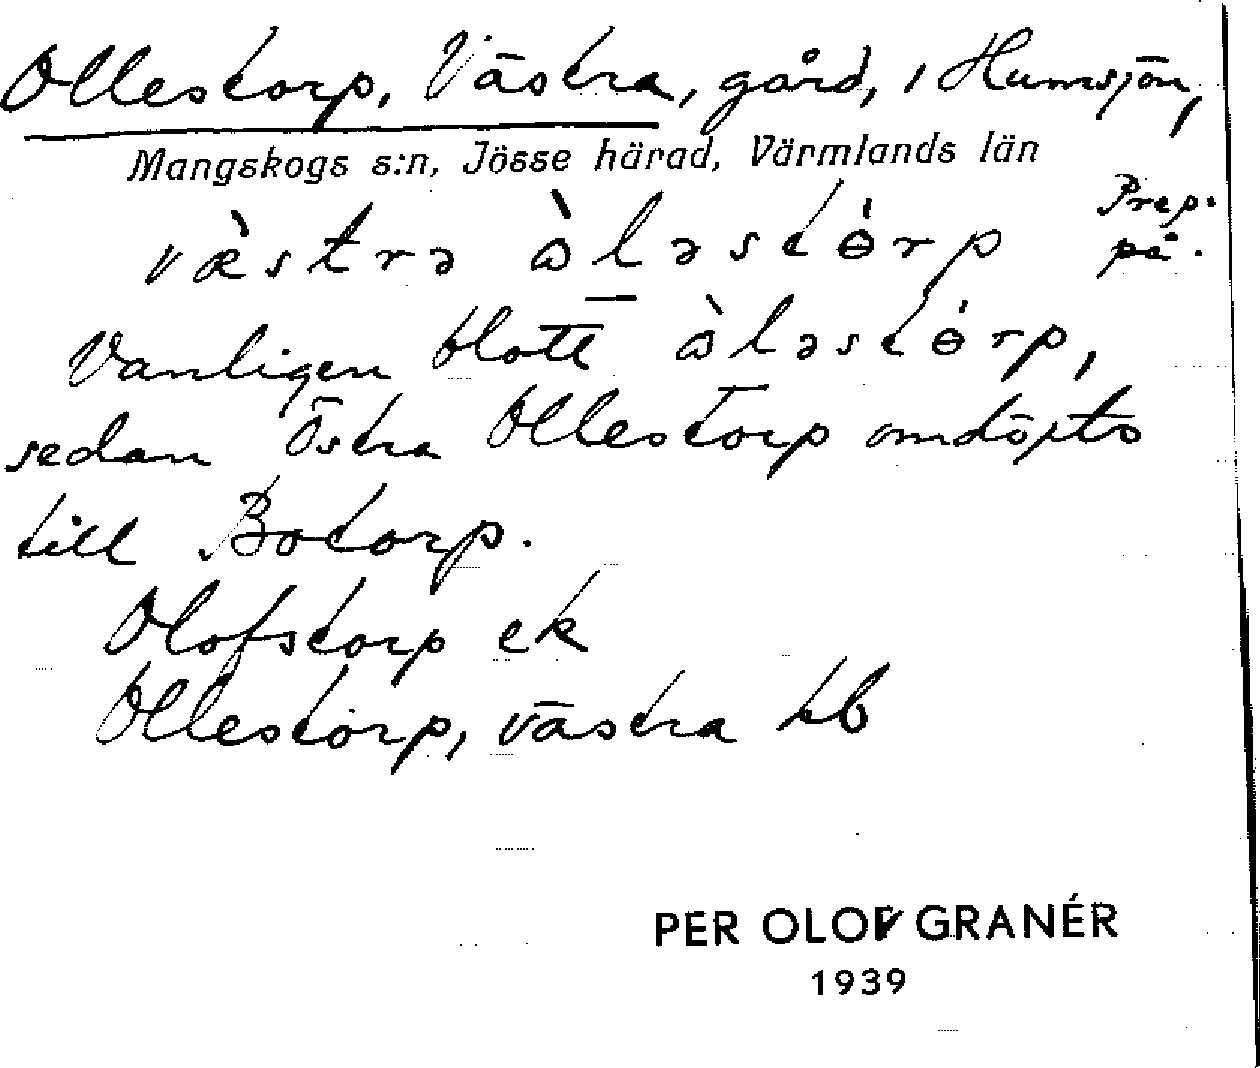 Ollestorp, Västra, gård, i Humsjön,
Mangskogs s:n, Jösse härad, Värmlands län
væ̀strə ɷ̀ləstɵ́rp Prep. på.
Vanligen blott ɷ̀ləstɵ́rp,
sedan Östra Ollestorp omdöpts
till Botorp.
Olofstorp ek
Ollestorp, västra kb
PER OLOV GRANÉR
1939